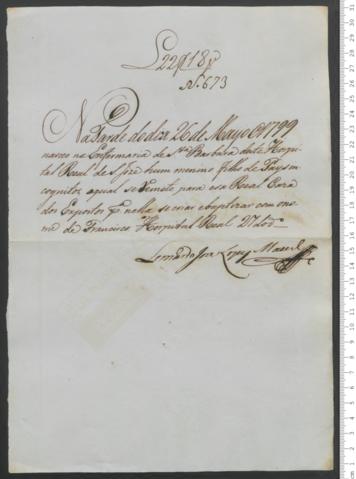 L 22 f 18 v
N. 673
Na tarde do dia 26 de Mayo de 1799
nasceo na Enfermaria de Sta Barbara deste Hospi-
tal Real de S. Joze hum menino filho de Pays in
cognitos, o qual se remete para essa Real Caza
dos Expostos pa nella se criar e baptizar com o no-
me de Francisco Hospital Real 27 do do
Joze Lopez